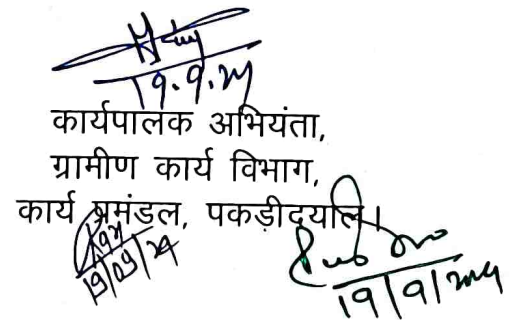 19.9.24
कार्यपालक अभियंता,
ग्रामीण कार्य विभाग,
कार्य प्रमंडल, पकड़ीदयाल।
19/09/24
19/9/2024